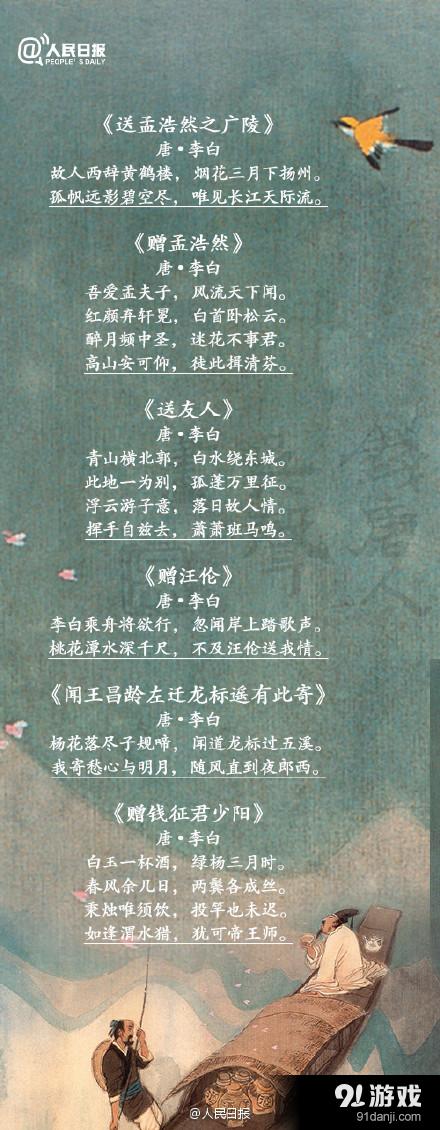 @人民日报
PEOPLE'S DAILY
《送孟浩然之广陵》
唐·李白
故人西辞黄鹤楼，烟花三月下扬州。
孤帆远影碧空尽，唯见长江天际流。
《赠孟浩然》
唐·李白
吾爱孟夫子，风流天下闻。
红颜弃轩冕，白首卧松云。
醉月频中圣，迷花不事君。
高山安可仰，徒此揖清芬。
《送友人》
唐·李白
青山横北郭，白水绕东城。
此地一为别，孤蓬万里征。
浮云游子意，落日故人情。
挥手自兹去，萧萧班马鸣。
《赠汪伦》
唐·李白
李白乘舟将欲行，忽闻岸上踏歌声。
桃花潭水深千尺，不及汪伦送我情。
《闻王昌龄左迁龙标遥有此寄》
唐·李白
杨花落尽子规啼，闻道龙标过五溪。
我寄愁心与明月，随风直到夜郎西。
《赠钱征君少阳》
唐·李白
白玉一杯酒，绿杨三月时。
春风余几日，两鬓各成丝。
秉烛唯须饮，投竿也未迟。
如逢渭水猎，犹可帝王师。
@人民日报
91游戏
91danji.com